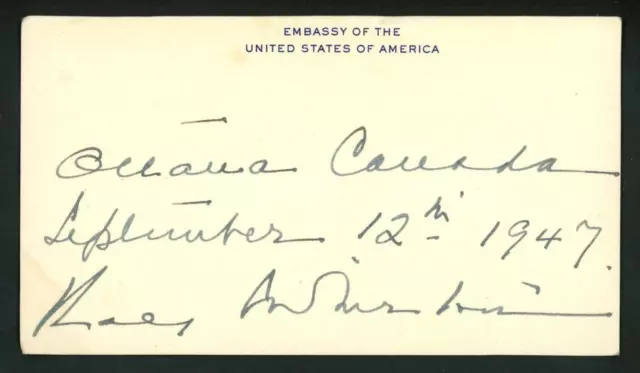 EMBASSY OF THE
UNITED STATES OF AMERICA
Ottawa Canada
September 12th 1947.
Ray Atherton